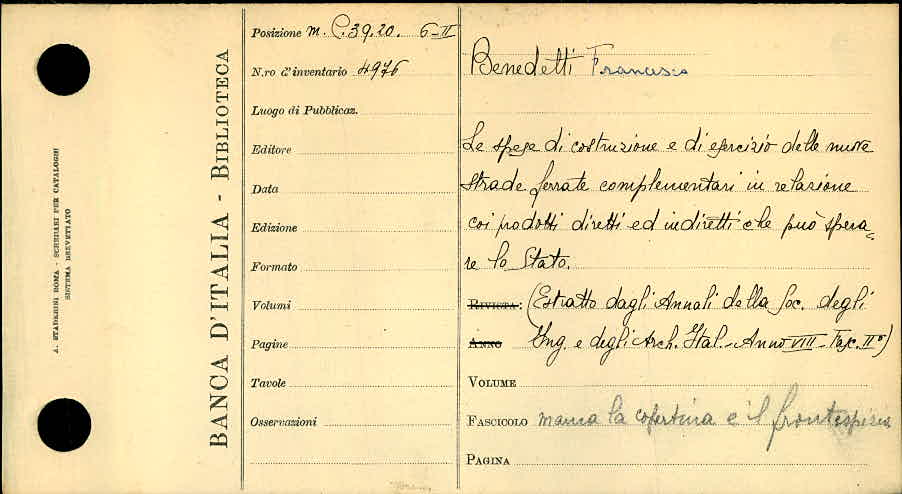 A. STADERINI ROMA - SCHEDARI PER CATALOGHI
SISTEMA BREVETTATO
BANCA D'ITALIA - BIBLIOTECA
Posizione m. C. 39. 20. 6-II
N.ro d'inventario 4976
Luogo di Pubblicaz.
Editore
Data
Edizione
Formato
Volumi
Pagine
Tavole
Osservazioni
Benedetti Francesco
Le spese di costruzione e di esercizio delle nuove
strade ferrate complementari in relazione
coi prodotti diretti ed indiretti che può spera-
re lo Stato.
RIVISTA: (Estratto dagli Annali della Soc. degli
ANNO Ing. e degli Arch. Ital. - Anno VIII - Fasc. II°)
VOLUME
FASCICOLO manca la copertina e il frontespizio
PAGINA